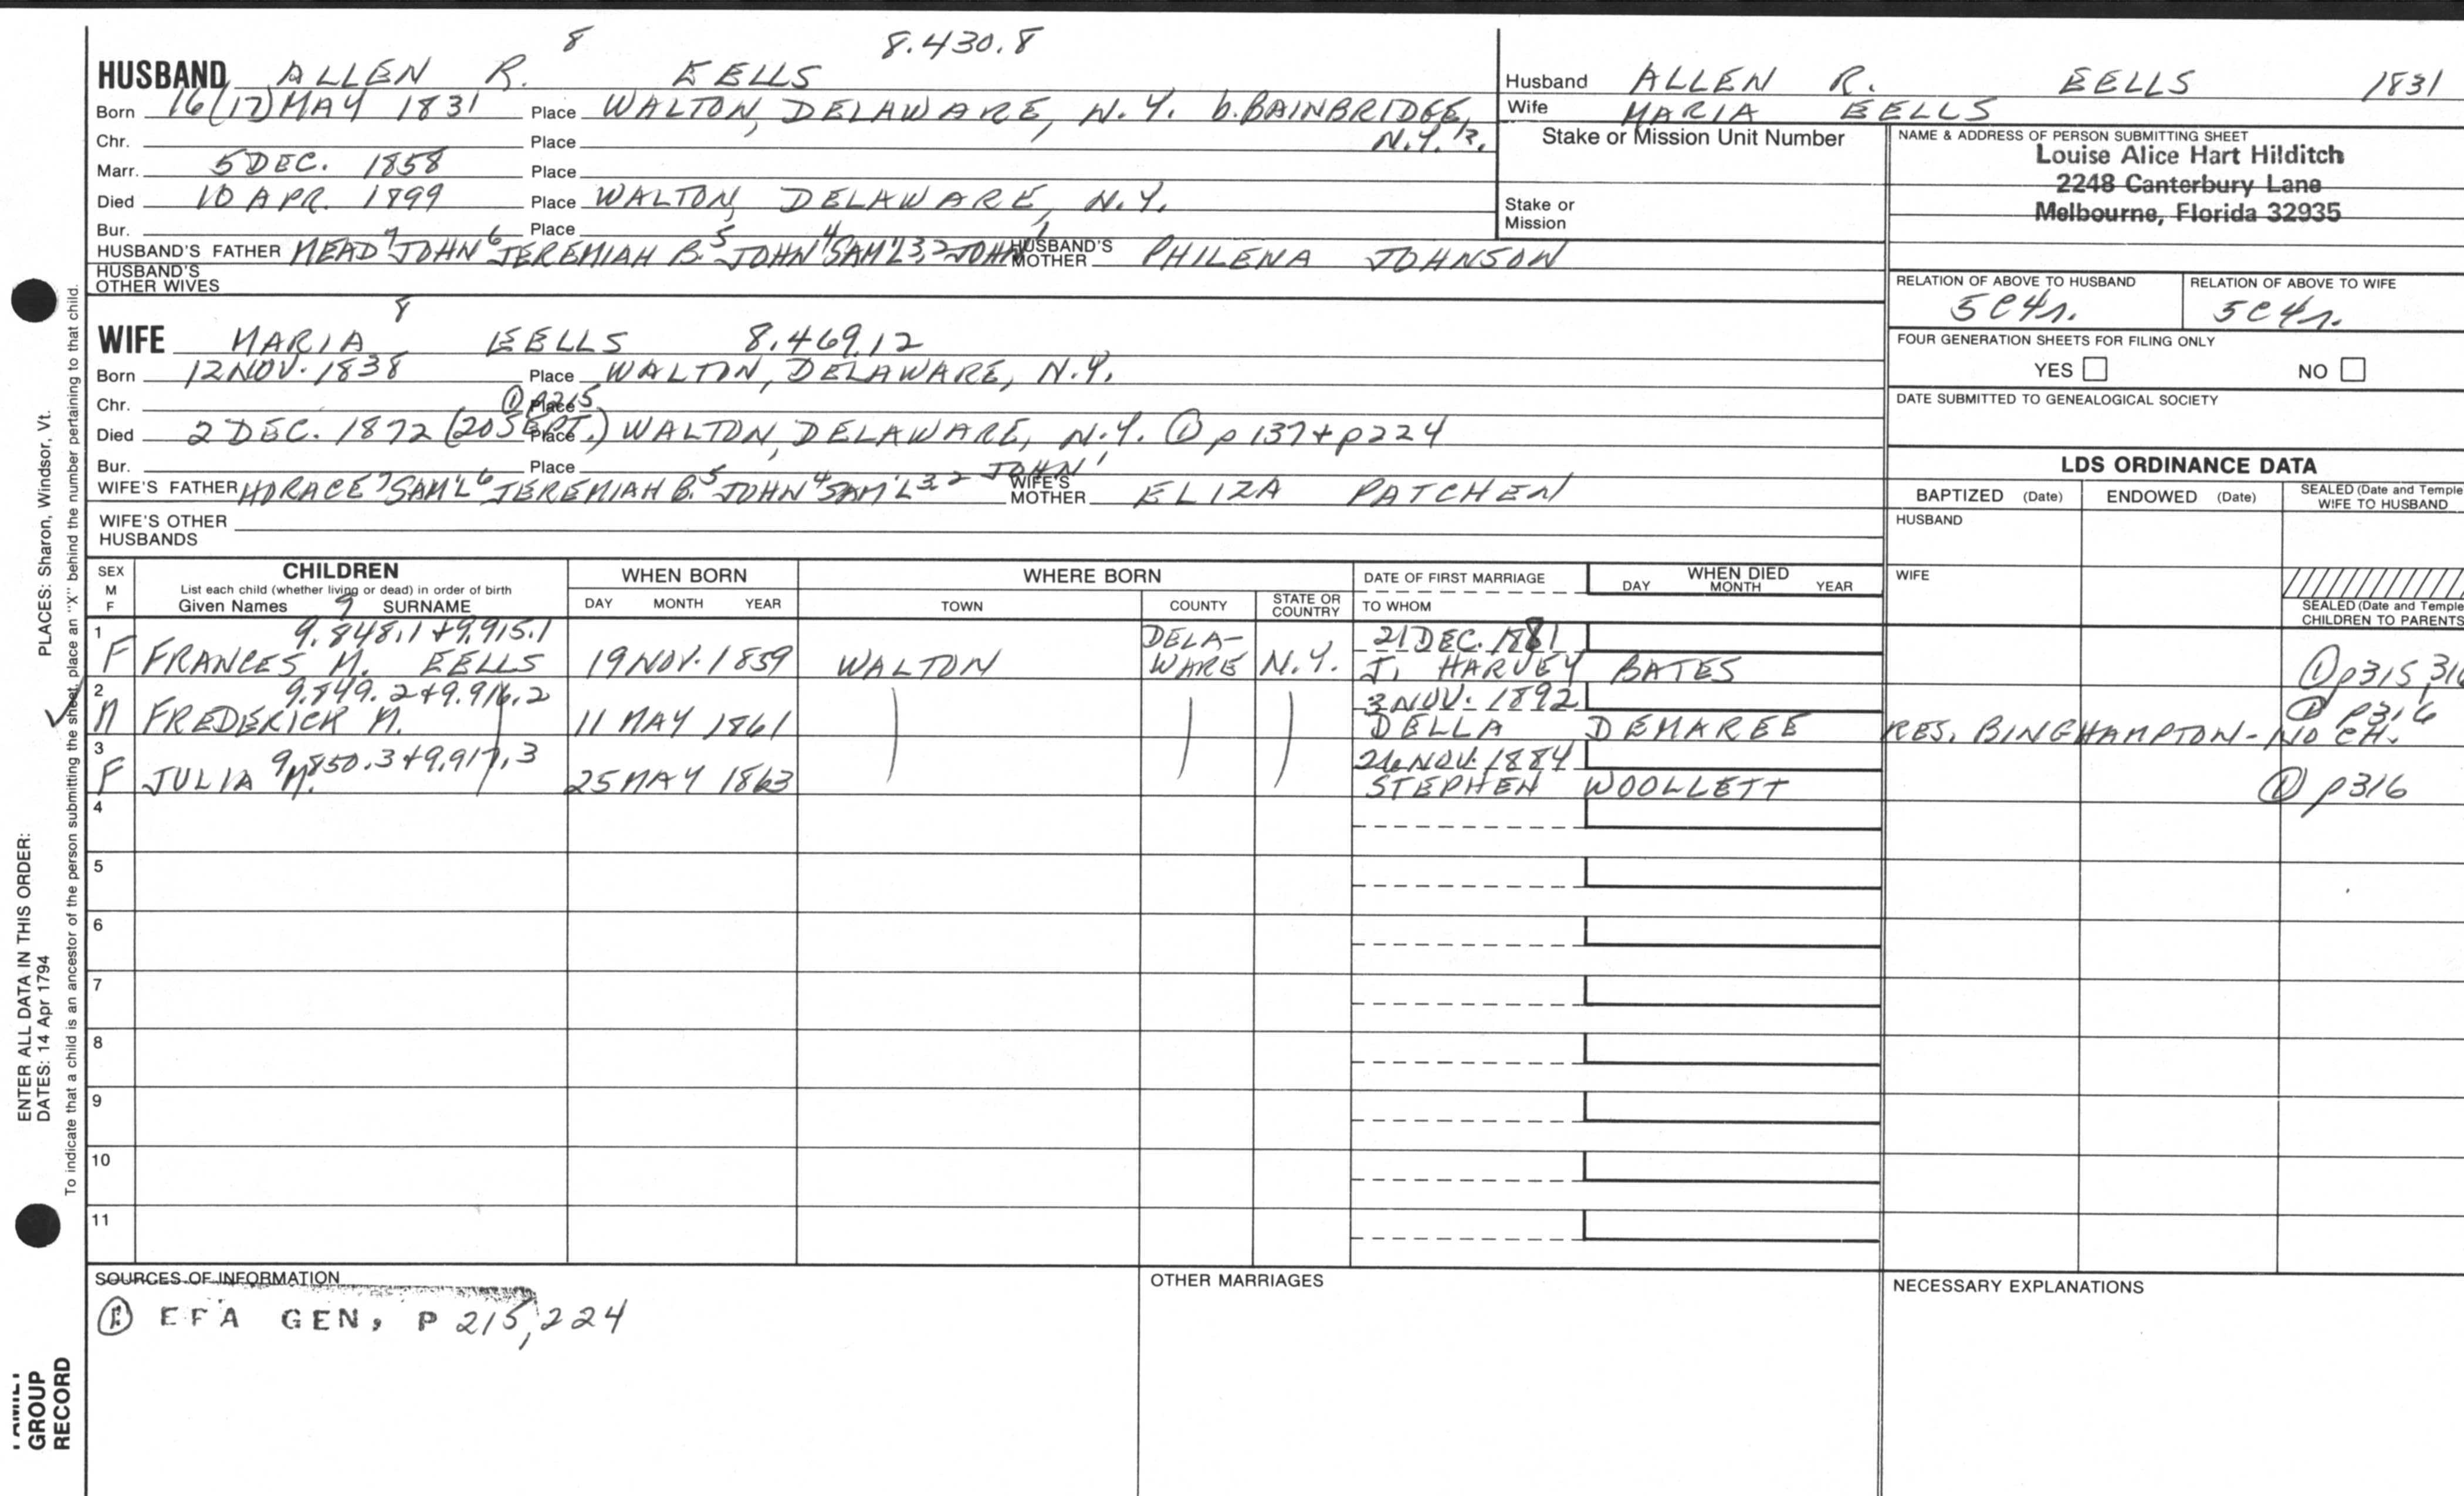 8 8.430.8
HUSBAND ALLEN R. EELLS
Born 16(17) MAY 1831 Place WALTON, DELAWARE, N.Y. b. BAINBRIDGE,
Chr. Place N.Y.
Marr. 5 DEC. 1858 Place
Died 10 APR. 1899 Place WALTON, DELAWARE, N.Y.
Bur. Place
HUSBAND'S FATHER MEAD7 JOHN6 JEREMIAH B.5 JOHN4 SAM'L3,2 JOHN1 HUSBAND'S MOTHER PHILENA JOHNSON
HUSBAND'S OTHER WIVES
8
WIFE MARIA EELLS 8.469.12
Born 12 NOV. 1838 Place WALTON, DELAWARE, N.Y.
Chr. Place ① p215
Died 2 DEC. 1872 (20 SEPT.) Place WALTON, DELAWARE, N.Y. ① p137+p224
Bur. Place
WIFE'S FATHER HORACE7 SAM'L6 JEREMIAH B.5 JOHN4 SAM'L3,2 JOHN1 WIFE'S MOTHER ELIZA PATCHEN
WIFE'S OTHER HUSBANDS
Husband ALLEN R. EELLS 1831
Wife MARIA EELLS
Stake or Mission Unit Number
Stake or
Mission
NAME & ADDRESS OF PERSON SUBMITTING SHEET
Louise Alice Hart Hilditch
2248 Canterbury Lane
Melbourne, Florida 32935
RELATION OF ABOVE TO HUSBAND RELATION OF ABOVE TO WIFE
5C4r. 5C4r.
FOUR GENERATION SHEETS FOR FILING ONLY
YES NO
DATE SUBMITTED TO GENEALOGICAL SOCIETY
LDS ORDINANCE DATA
BAPTIZED (Date) ENDOWED (Date) SEALED (Date and Temple
WIFE TO HUSBAND
HUSBAND
WIFE
SEALED (Date and Temple
CHILDREN TO PARENTS
SEX M F CHILDREN WHEN BORN WHERE BORN DATE OF FIRST MARRIAGE WHEN DIED
List each child (whether living or dead) in order of birth
Given Names 9 SURNAME DAY MONTH YEAR TOWN COUNTY STATE OR COUNTRY TO WHOM DAY MONTH YEAR
1 9.848.1+9.915.1 DELA- 21 DEC. 1881
F FRANCES M. EELLS 19 NOV. 1859 WALTON WARE N.Y. J. HARVEY BATES ① p315,316
2 9.849.2+9.916.2 3 NOV. 1892 ① p316
M FREDERICK M. 11 MAY 1861 DELLA DEMAREE RES. BINGHAMPTON-NO CH.
3 9.850.3+9.917.3 26 NOV. 1884
F JULIA M. 25 MAY 1863 STEPHEN WOOLLETT ① p316
4
5
6
7
8
9
10
11
SOURCES OF INFORMATION
EFA GEN, P 215,224
OTHER MARRIAGES
NECESSARY EXPLANATIONS
ENTER ALL DATA IN THIS ORDER:
DATES: 14 Apr 1794 PLACES: Sharon, Windsor, Vt.
To indicate that a child is an ancestor of the person submitting the sheet, place an "X" behind the number pertaining to that child.
FAMILY
GROUP
RECORD